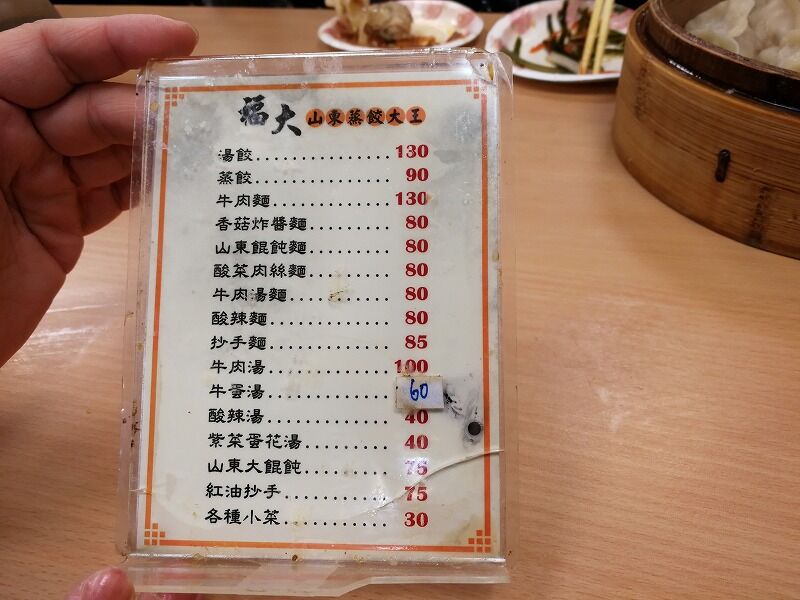 福大 山東蒸餃大王
湯餃................130
蒸餃................90
牛肉麵.............130
香菇炸醬麵.........80
山東餛飩麵.........80
酸菜肉絲麵.........80
牛肉湯麵...........80
酸辣麵..............80
抄手麵..............85
牛肉湯.............100
牛蛋湯.............60
酸辣湯.............40
紫菜蛋花湯.........40
山東大餛飩.........75
紅油抄手...........75
各種小菜...........30